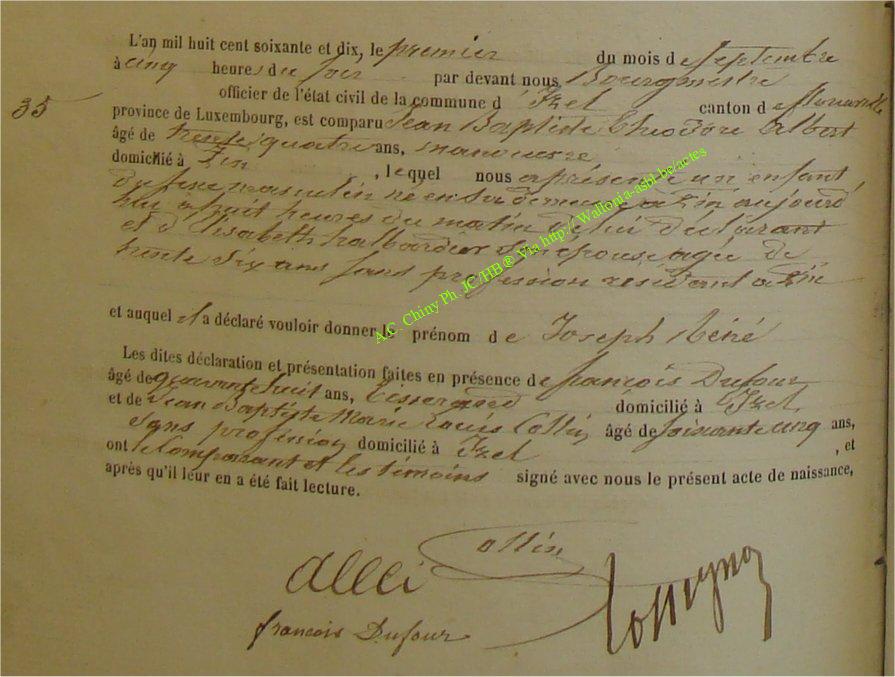 L'an mil huit cent soixante et dix, le premier du mois de Septembre
à cinq heures du soir par devant nous Bourgmestre
officier de l'état civil de la commune d'Izel canton de florenville
35
province de Luxembourg, est comparu Jean Baptiste Theodore Albert
âgé de trente quatre ans, manœuvre
domicilié à Zin, lequel nous a présenté un enfant
du sexe masculin né en sa demeure a Zin aujourd
hui a huit heures du matin de lui déclarant
et d'Elisabeth halbardier son épouse agée de
trente six ans sans profession residant a Zin
et auquel il a déclaré vouloir donner le prénom de Joseph Réné
Les dites déclaration et présentation faites en présence de françois Dufour
âgé de quarante huit ans, Tisserand domicilié à Izel
et de Jean Baptiste Marie Louis Collin âgé de soixante cinq ans,
sans profession domicilié à Izel, et
ont le Comparant et les témoins signé avec nous le présent acte de naissance,
après qu'il leur en a été fait lecture.
Collin
francois Dufour
A.C. Chiny Ph. JC/HB® Via http://Wallonia-asbl.be/actes